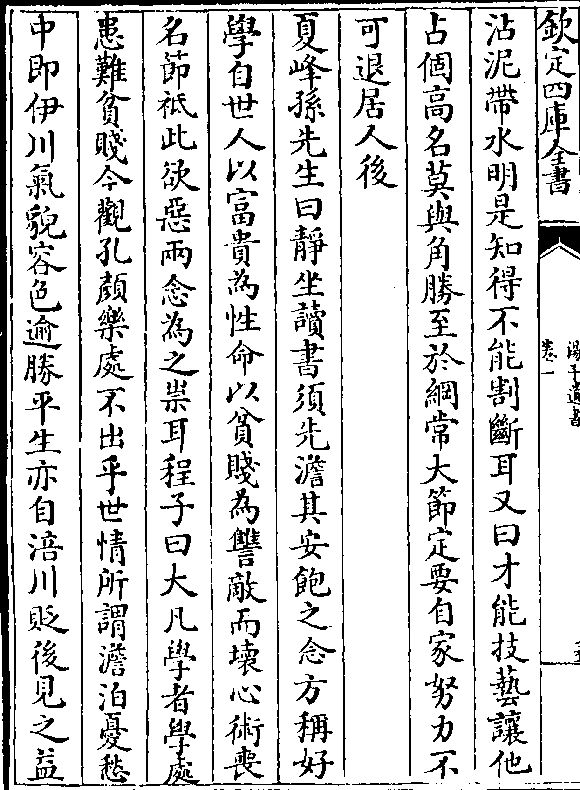 欽定四庫全書
卷一
沾泥帶水明是知得不能割斷耳又曰才能技藝讓他
占個高名莫與角勝至於綱常大節定要自家努力不
可退居人後
夏峰孫先生曰靜坐讀書須先澹其安飽之念方稱好
學自世人以富貴為性命以貧賤為讐敵而壞心術喪
名節祇此欲惡兩念為之祟耳程子曰大凡學者學處
患難貧賤今觀孔顔樂處不出乎世情所謂澹泊憂愁
中即伊川氣貌容色逾勝平生亦自涪川貶後見之益